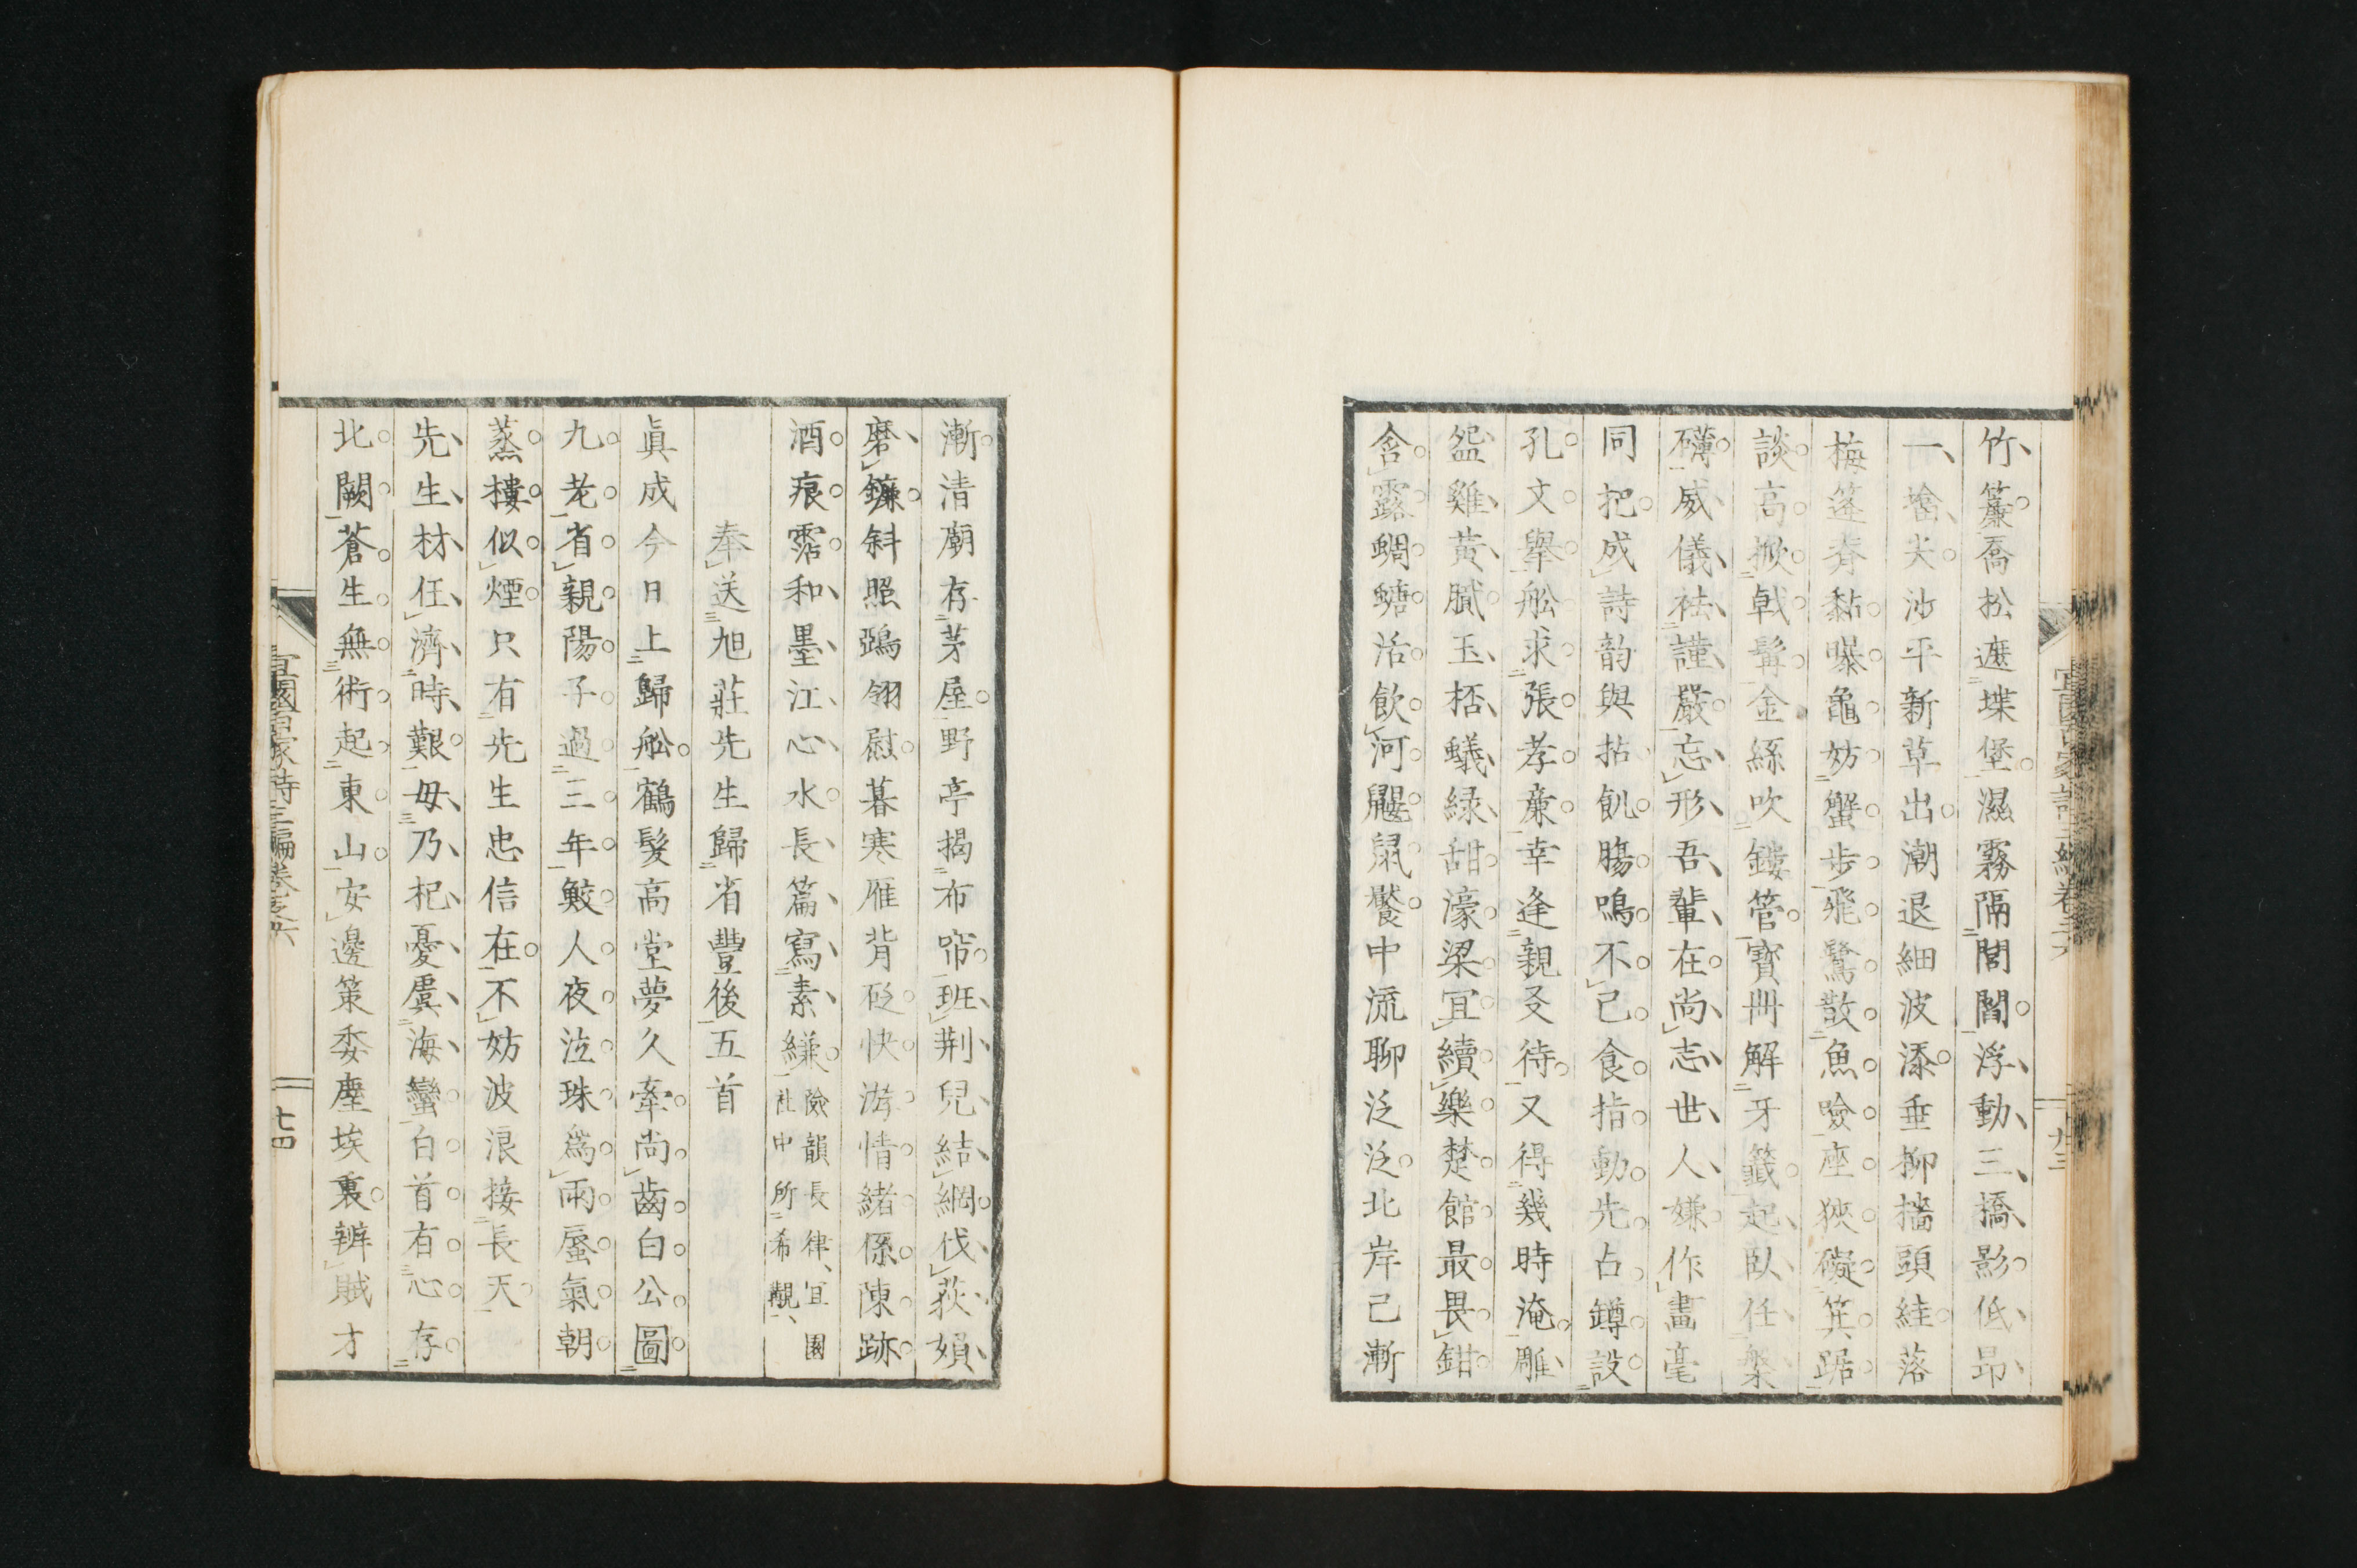 竹簾喬松遮堞堡濕霧隔閭閻浮動三橋影低昻
一檣尖沙平新草出潮退細波添垂柳牆頭絓落
梅篷脊黏曝龜妨蟹步飛鷺散魚噞座狹礙箕踞
談高掀戟髯金絲吹鏤管寶冊解牙籤起臥任槃
礴威儀袪謹嚴忘形吾輩在尚志世人嫌作畫毫
同把成詩韵與拈飢腸鳴不已食指動先占罇設
孔文擧舩求張孝廉幸逢親爻待又得幾時淹雕
盌雞黃膩玉桮蟻綠甜濠梁宜續樂楚館最畏鉗
含露蜩螗沸飮河鼴鼠饜中流聊泛泛北岸已漸
漸清廟存茅屋野亭揭布帘班荆兒結網伐荻嬪
磨鎌斜照鴉翎尉暮寒雁背砭快游情緖係陳跡
酒痕霑和墨江心水長篇寫素縑險韻長律、宜園社中所希覯、
奉送旭莊先生歸省豐後五首
眞成今日上歸舩鶴髮高堂夢久牽尚齒白公圖
九老省親陽子過三年鮫人夜泣珠爲兩蜃氣朝
蒸樓似煙只有先生忠信在不妨波浪接長天
先生材任濟時艱毋乃杞憂虞海蠻白首有心存
北闕蒼生無術起東山安邊策委塵埃裏辨賊才
宜園百家詩三編卷之六
七四